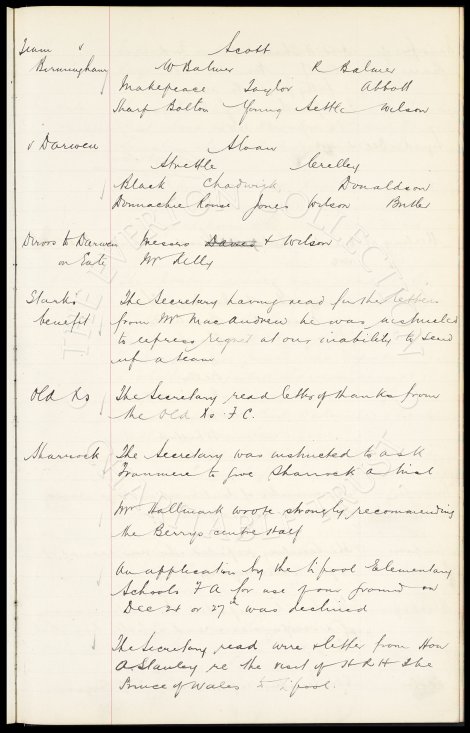 Team v Scott
Birmingham W Balmer R Balmer
Makepeace Taylor Abbott
Sharp Bolton Young Settle Wilson
v Darwen Sloan
Strettle Crelley
Black Chadwick Donaldson
Donnachie Rouse Jones Wilson Butler
Dircrs to Darwen Messrs Davies & Wilson
on Gate Mr Kelly
Stark's The Secretary having read further letters
benefit from Mr MacAndrew he was instructed
to express regret at our inability to send
up a team
Old Xs The Secretary read letter of thanks from
the Old Xs F C.
Sharrock The Secretary was instructed to ask
Tranmere to give Sharrock a trial
Mr Hallmark wrote strongly recommending
the Berrys centre Half
An application by the L'pool Elementary
Schools F A for use of our ground on
Dec 24 or 27th was declined
The Secretary read wire & letter from Hon
A Stanley re the visit of H R H The
Prince of Wales to L'pool.
THE EVERTON COLLECTION
CHARITABLE TRUST